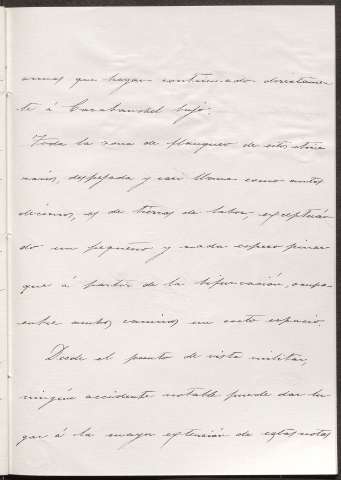 armas que hayan continuado directamen
te á Carabanchel bajo.
Toda la zona de flanqueo de este
despejada y casi llana como antes
decimos, es de tierras de labor, exceptuán
do un pequeño y nada espeso pinar
que á partir de la bifurcación, ocupa
entre ambos caminos un corto espacio.
Desde el punto de vista militar,
ningún accidente notable puede dar lu
gar á la mayor extensión de estas notas